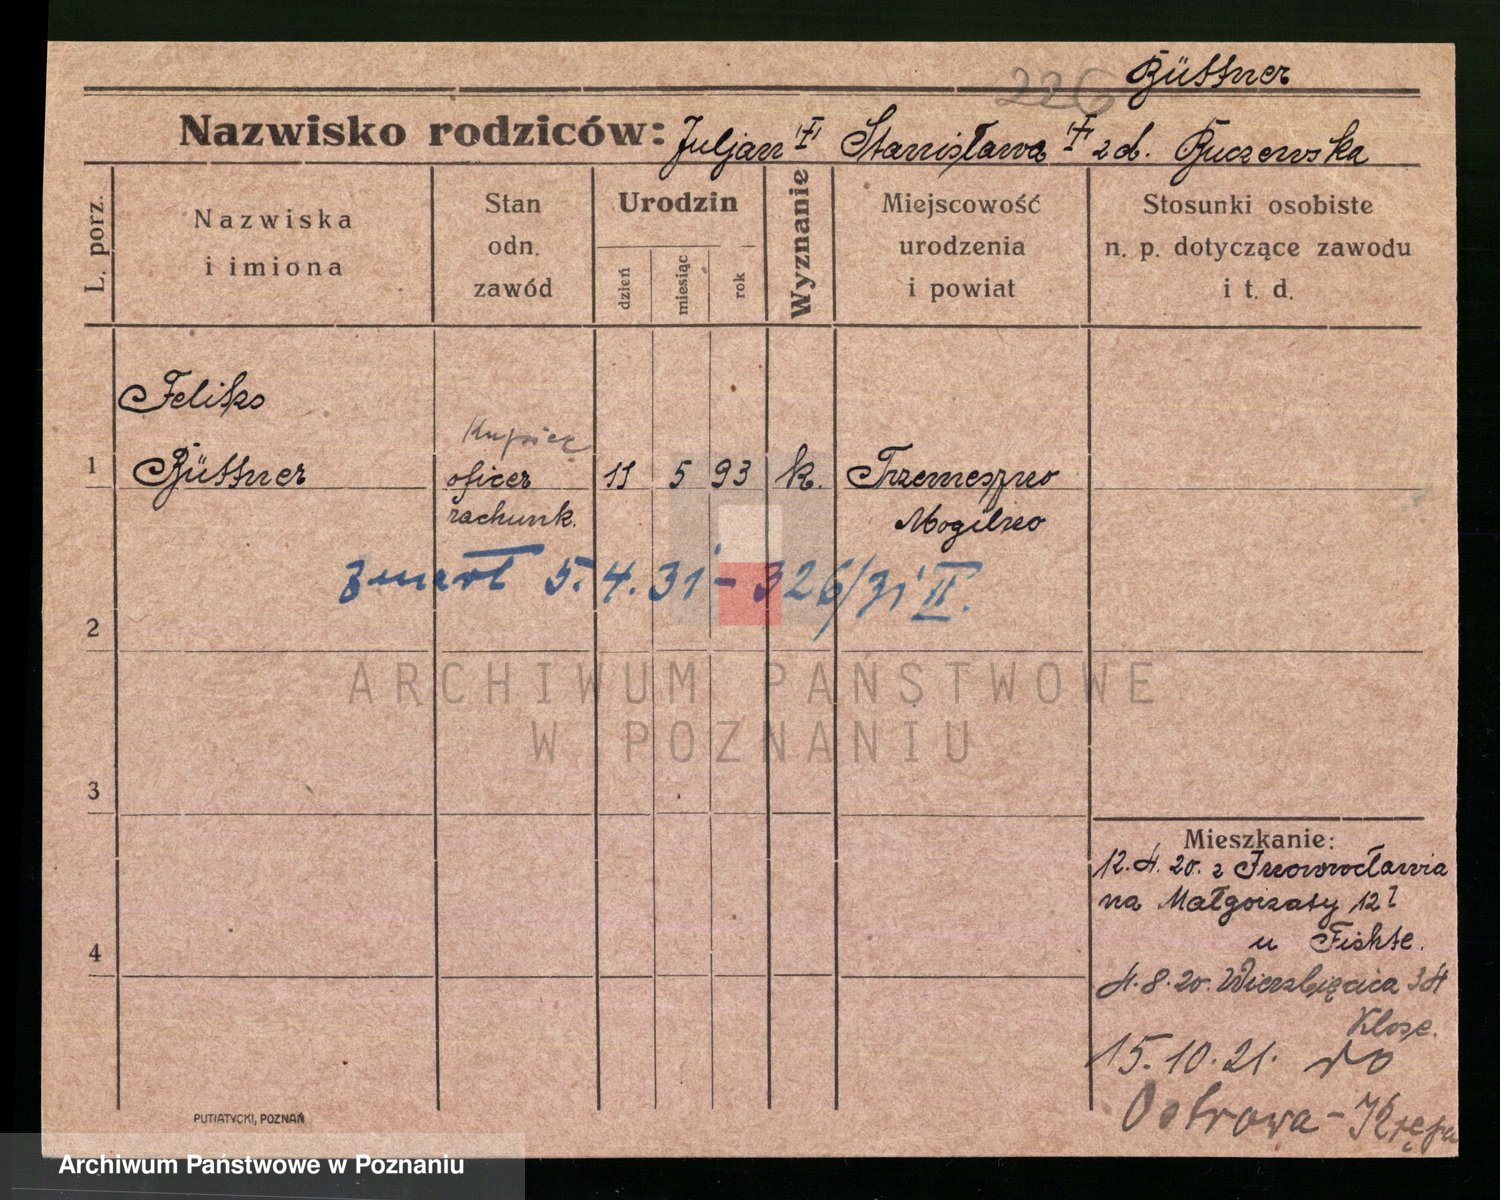 226 Büttner
Nazwisko rodziców: Juljan Stanisława zd. Buczewska
L. porz.
Nazwiska i imiona
Stan odn. zawód
Urodzin
dzień
miesiąc
rok
Wyznanie
Miejscowość urodzenia i powiat
Stosunki osobiste n. p. dotyczące zawodu i t. d.
Feliks
Kupiec
1 Büttner oficer 11 5 93 k. Trzemeszno
rachunk. Mogilno
zmarł 5.4.31 - 326/31 II.
2
ARCHIWUM PAŃSTWOWE
W POZNANIU
3
Mieszkanie:
12.4.20. z Inowrocławia
na Małgorzaty 12
u Fichte.
4
4.8.20. Wierzbięcica 34
Klose.
15.10.21. do
Ostrowa - Krępa
PUTIATYCKI, POZNAŃ
Archiwum Państwowe w Poznaniu